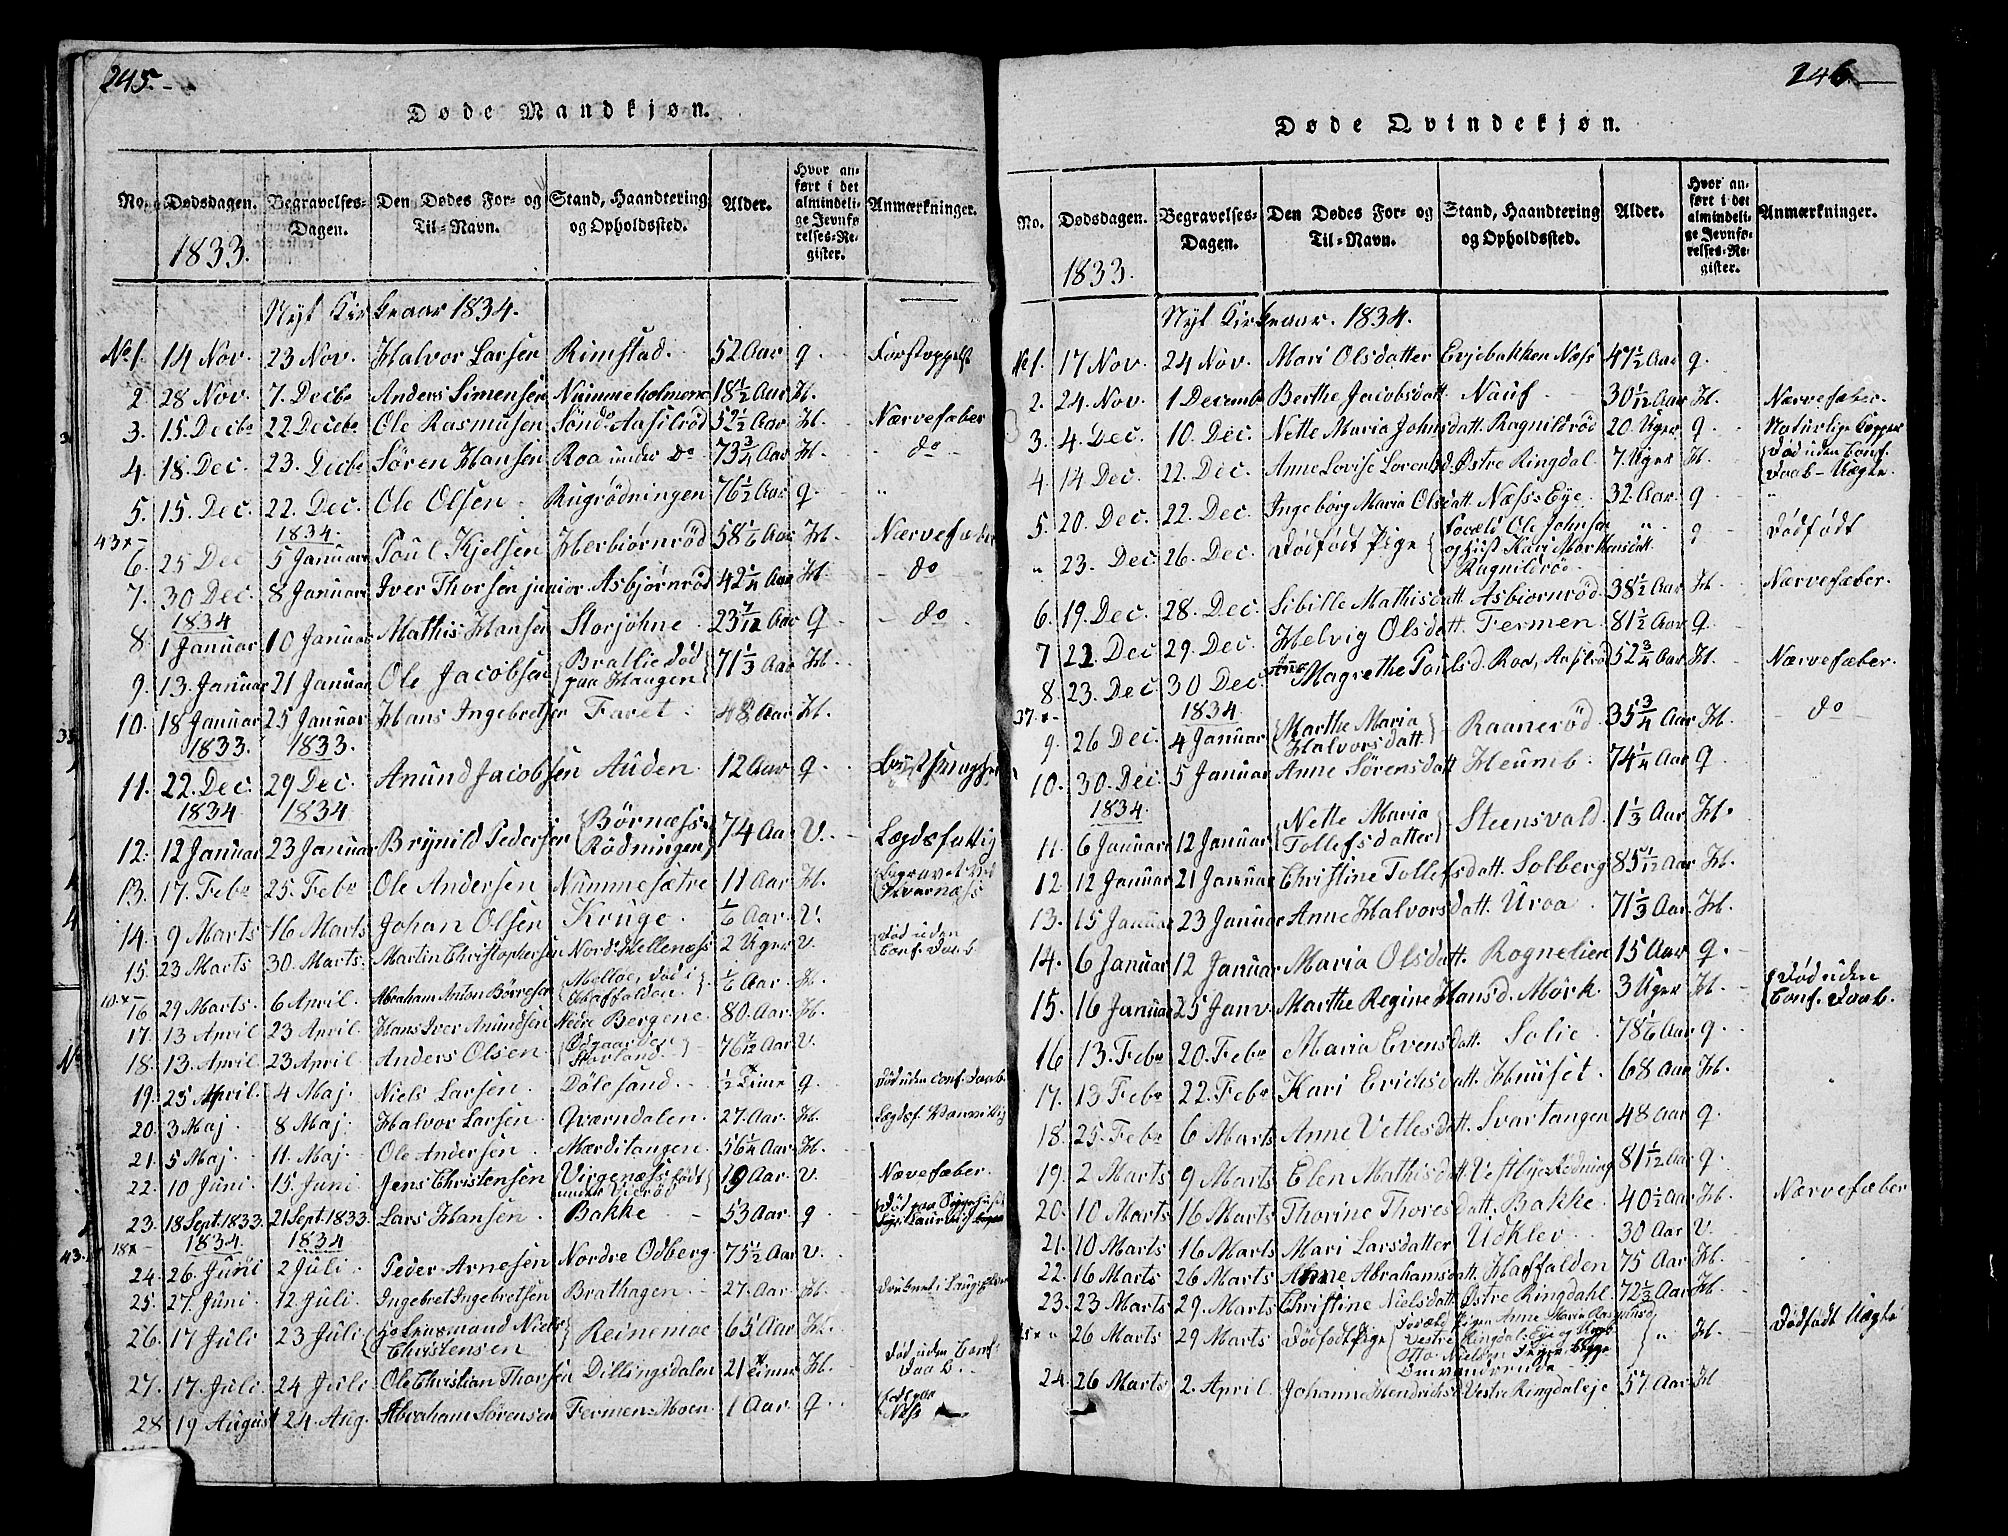 245.
Døde Mandkjøn.
No. Dødsdagen. Begravelses-Dagen. Den Dødes For- og Til-Navn. Stand, Haandtering og Opholdssted. Alder. Hvor anført i det almindelige Jevnførelses-Register. Anmærkninger.
1833.
Nyt Kirkeaar 1834.
No 1. 14 Nov. 23 Nov. Halvor Larsen Rimstad. 52 Aar g. Forstoppelse
2 28 Nov. 7. Decbr Anders Simensen Nummeholmene 18 1/2 Aar H.
3. 15. Decbr 22 Decbr Ole Rasmusen Sønd. Aasilröd 52 1/2 Aar H. Nærvefæber
4. 18. Dec. 23. Decbr Sören Hansen Roa under Do 73 3/4 Aar H. do
5. 15. Dec. 22. Dec. Ole Olsen Rugrödningen 76 1/2 Aar g. "
1834.
43x
6. 25 Dec 5 Januari Poul Kjelsen Herbiörnröd 58 1/6 Aar H. Nærvefæber
7. 30 Dec. 8 Januari Iver Thorsen junior Asbjørnröd 42 1/4 Aar H. do
1834
8. 1 Januar 10 Januar Mathis Hansen Storjöhne 23 7/12 Aar g. do
9. 13. Januar 21 Januar Ole Jacobsen Brattlie død paa Haugen 71 1/3 Aar H.
10. 18 Januar 25 Januar Hans Ingebretsen Faret 48 Aar H.
1833. 1833.
11. 22. Dec. 29 Dec. Anund Jacobsen Auden 12 Aar g.
1834 1834
12. 12 Januar 23 Januar Brynild Pedersen Börnæss-Rödningen 74 Aar V. Lægdsfattig
13. 17. Febr 25. Febr Ole Andersen Nummesætre 11 Aar H. begravet ved Hvarnæss
14. 9 Marts 16 Marts Johan Olsen Kruge 1/6 Aar. V.
15. 23 Marts 30. Marts. Martin Christophersen Nord. Hellenæss 2 Uger V. död uden Conf. Daab
10x
16 29 Marts. 6 April. Abraham Anton Börresen Melloe, død i Haffalden 1/6 Aar. H.
17. 13 April 23 April. Hans Iver Anundsen Nedre Bergene 80. Aar H.
18. 13. April 23 April. Anders Olsen Odgaarden Styrland 76 7/12 Aar V.
19. 25 April. 4 Maj. Niels Larsen. Dölesand 1/2 Time g. Död uden Conf. Daab
20. 3 Maj 8 Maj. Halvor Larsen Qværndalen 27. Aar. H. Lægdsf. Vanvittig
21. 5 Maj 11. Maj Ole Andersen Mærditangen 56 1/4 Aar H.
22. 10 Juni. 15. Juni Jens Christensen Virgenæss født under Vieröd 19 Aar. V. Nævefæber.
23. 18 Sept. 1833. 21 Sept. 1833. Lars Hansen. Bakke 53 Aar. g.
1834. 1834
18x
24. 26. Juni 2 Juli. Peder Arnesen Nordre Odberg 75 1/2 Aar V.
25. 27. Juni 12. Juli. Ingebret Ingebretsen Brathagen 27. Aar. H.
26. 17 Juli 23 Juli Lensmand Niels Christensen Reinemoe 65 Aar. H.
27. 17. Juli. 24 Juli Ole Christian Thorsen Dillingsdalen 21 Timer H. Död uden Conf. Daab.
28 19 August 24 Aug. Abraham Sørensen Fermen-Moen 1 Aar. g.
246
Døde Qvindekjøn.
No. Dødsdagen. Begravelses-Dagen. Den Dødes For- og Til-Navn. Stand, Haandtering og Opholdssted. Alder. Hvor anført i det almindelige Jevnførelses-Register. Anmærkninger.
1833.
Nyt Kirkeaar. 1834.
No 1. 17 Nov. 24 Nov. Mari Olsdatter Eyebakken Næss 47 1/2 Aar g.
2. 24. Nov. 1 Decemb Berthe Jacobsdatt Nauf 30 1/12 Aar H. Nærvefæber.
3. 4. Dec. 10. Dec. Nette Maria Johnsdatt. Ragnildröd 20. Uger g. Naturlige Kopper
4. 14 Dec. 22. Dec. Anne Lovise Lorentsd. Østre Ringdal. 7. Uger H. Död uden Conf. Daab - Uægte.
5. 20 Dec. 22. Dec. Ingeborg Maria Olsdatt. Næss-Eye. 32. Aar. g "
" 23. Dec. 26. Dec. Dödfødt Pige Foræld. Ole Johnsen og Hust. Kari Marthinsdatt. Ragnildröd " g Dödfödt
6. 19. Dec. 28. Dec. Sibille Mathisdatt Asbiornröd 38 1/2 Aar H. Nærvefæber.
7 22. Dec 29. Dec. Helvig Olsdatt. Fermen 81 1/2 Aar g.
8 23. Dec 30 Dec. Magrethe Poulsd. Roa, Aasilröd 52 3/4 Aar H. Nærvefæber.
37.x 1834.
9. 26 Dec. 4 Januar Marthe Maria Halvorsdatt. Raaneröd 35 3/4 Aar H. do
10. 30 Dec. 5 Januar Anne Sörensdatt Heumb. 74 1/4 Aar g.
1834.
11. 6 Januari 12 Januar Nette Maria Tollefsdatter Steensvald 1 1/3 Aar H.
12. 12 Januar 21 Januar Christine Tollefsdatt. Solberg 85 1/12 Aar H.
13. 15 Januar 23 Januar Anne Halvorsdatt. Uroa 71 1/3 Aar. H.
14. 6 Januar 12 Januar Maria Olsdatt. Rognelien 15 Aar g.
15. 16 Januar 25 Janv. Marthe Regine Hansd. Mörk 3 Uger H. Död uden Conf. Daab.
16 13. Febr 20. Febr Maria Evensdatt. Solie 78 1/6 Aar g.
17. 13 Febr 22. Febr Kari Erichsdatt. Huuset. 68 Aar H.
18. 25. Febr 6 Marts Anne Vetlesdatt. Svartangen 48 Aar g.
19. 2 Marts 9 Marts Elen Mathisdatt Vestbye-Rödning 81 1/12 Aar g.
20. 10 Marts 16 Marts Thorine Thoresdatt. Bakke. 40 1/2 Aar H. Nærvefæber
21. 10 Marts 16 Marts Mari Larsdatter Udklev. 30 Aar V.
22. 16 Marts 26 Marts Anne Abrahamsdatt. Haffalden 75 Aar H.
23. 23 Marts 29. Marts Christine Nielsdatt. Østre Ringdahl. 72 2/3 Aar H.
" 26 Marts 29 Marts Dödfødt Pige Foræld. Pigen Anne Maria Rasmusd Vestre Ringdal-Eye og Otto Nielsen " H. Dödfødt Uægte
24. 26 Marts 2. April. Johanne Hendrichsd. Vestre Ringdaleje 57. Aar H